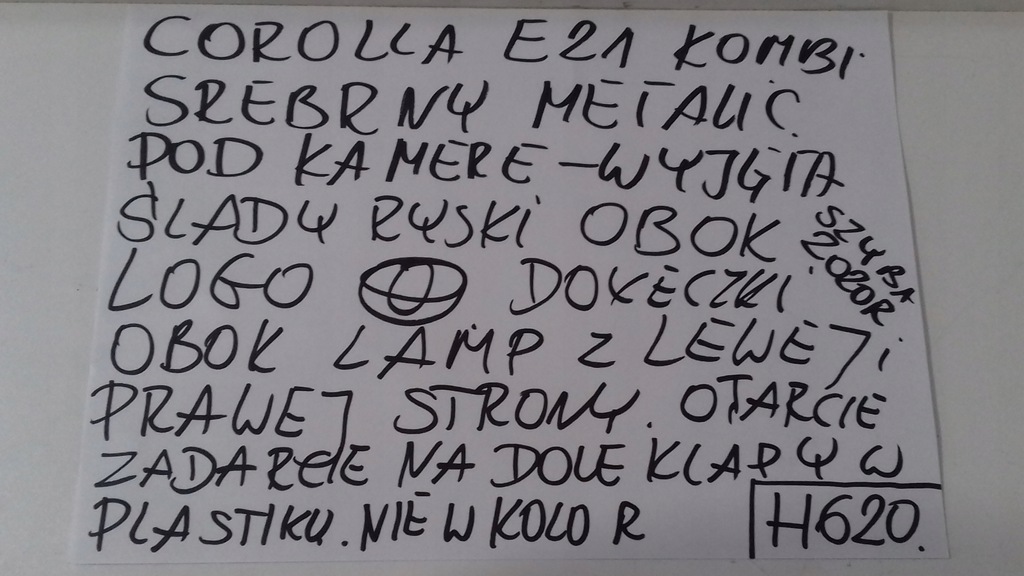 COROLLA E21 KOMBI
SREBRNY METALIC
POD KAMERE - WYJĘTA
ŚLADY RYSKI OBOK
SZYBA
ZOBOR
LOGO DOŁECZKI
OBOK LAMP Z LEWEJ i
PRAWEJ STRONY. OTARCIE
ZADARCIE NA DOLE KLAPY W
PLASTIKU. NIE W KOLOR
H620.